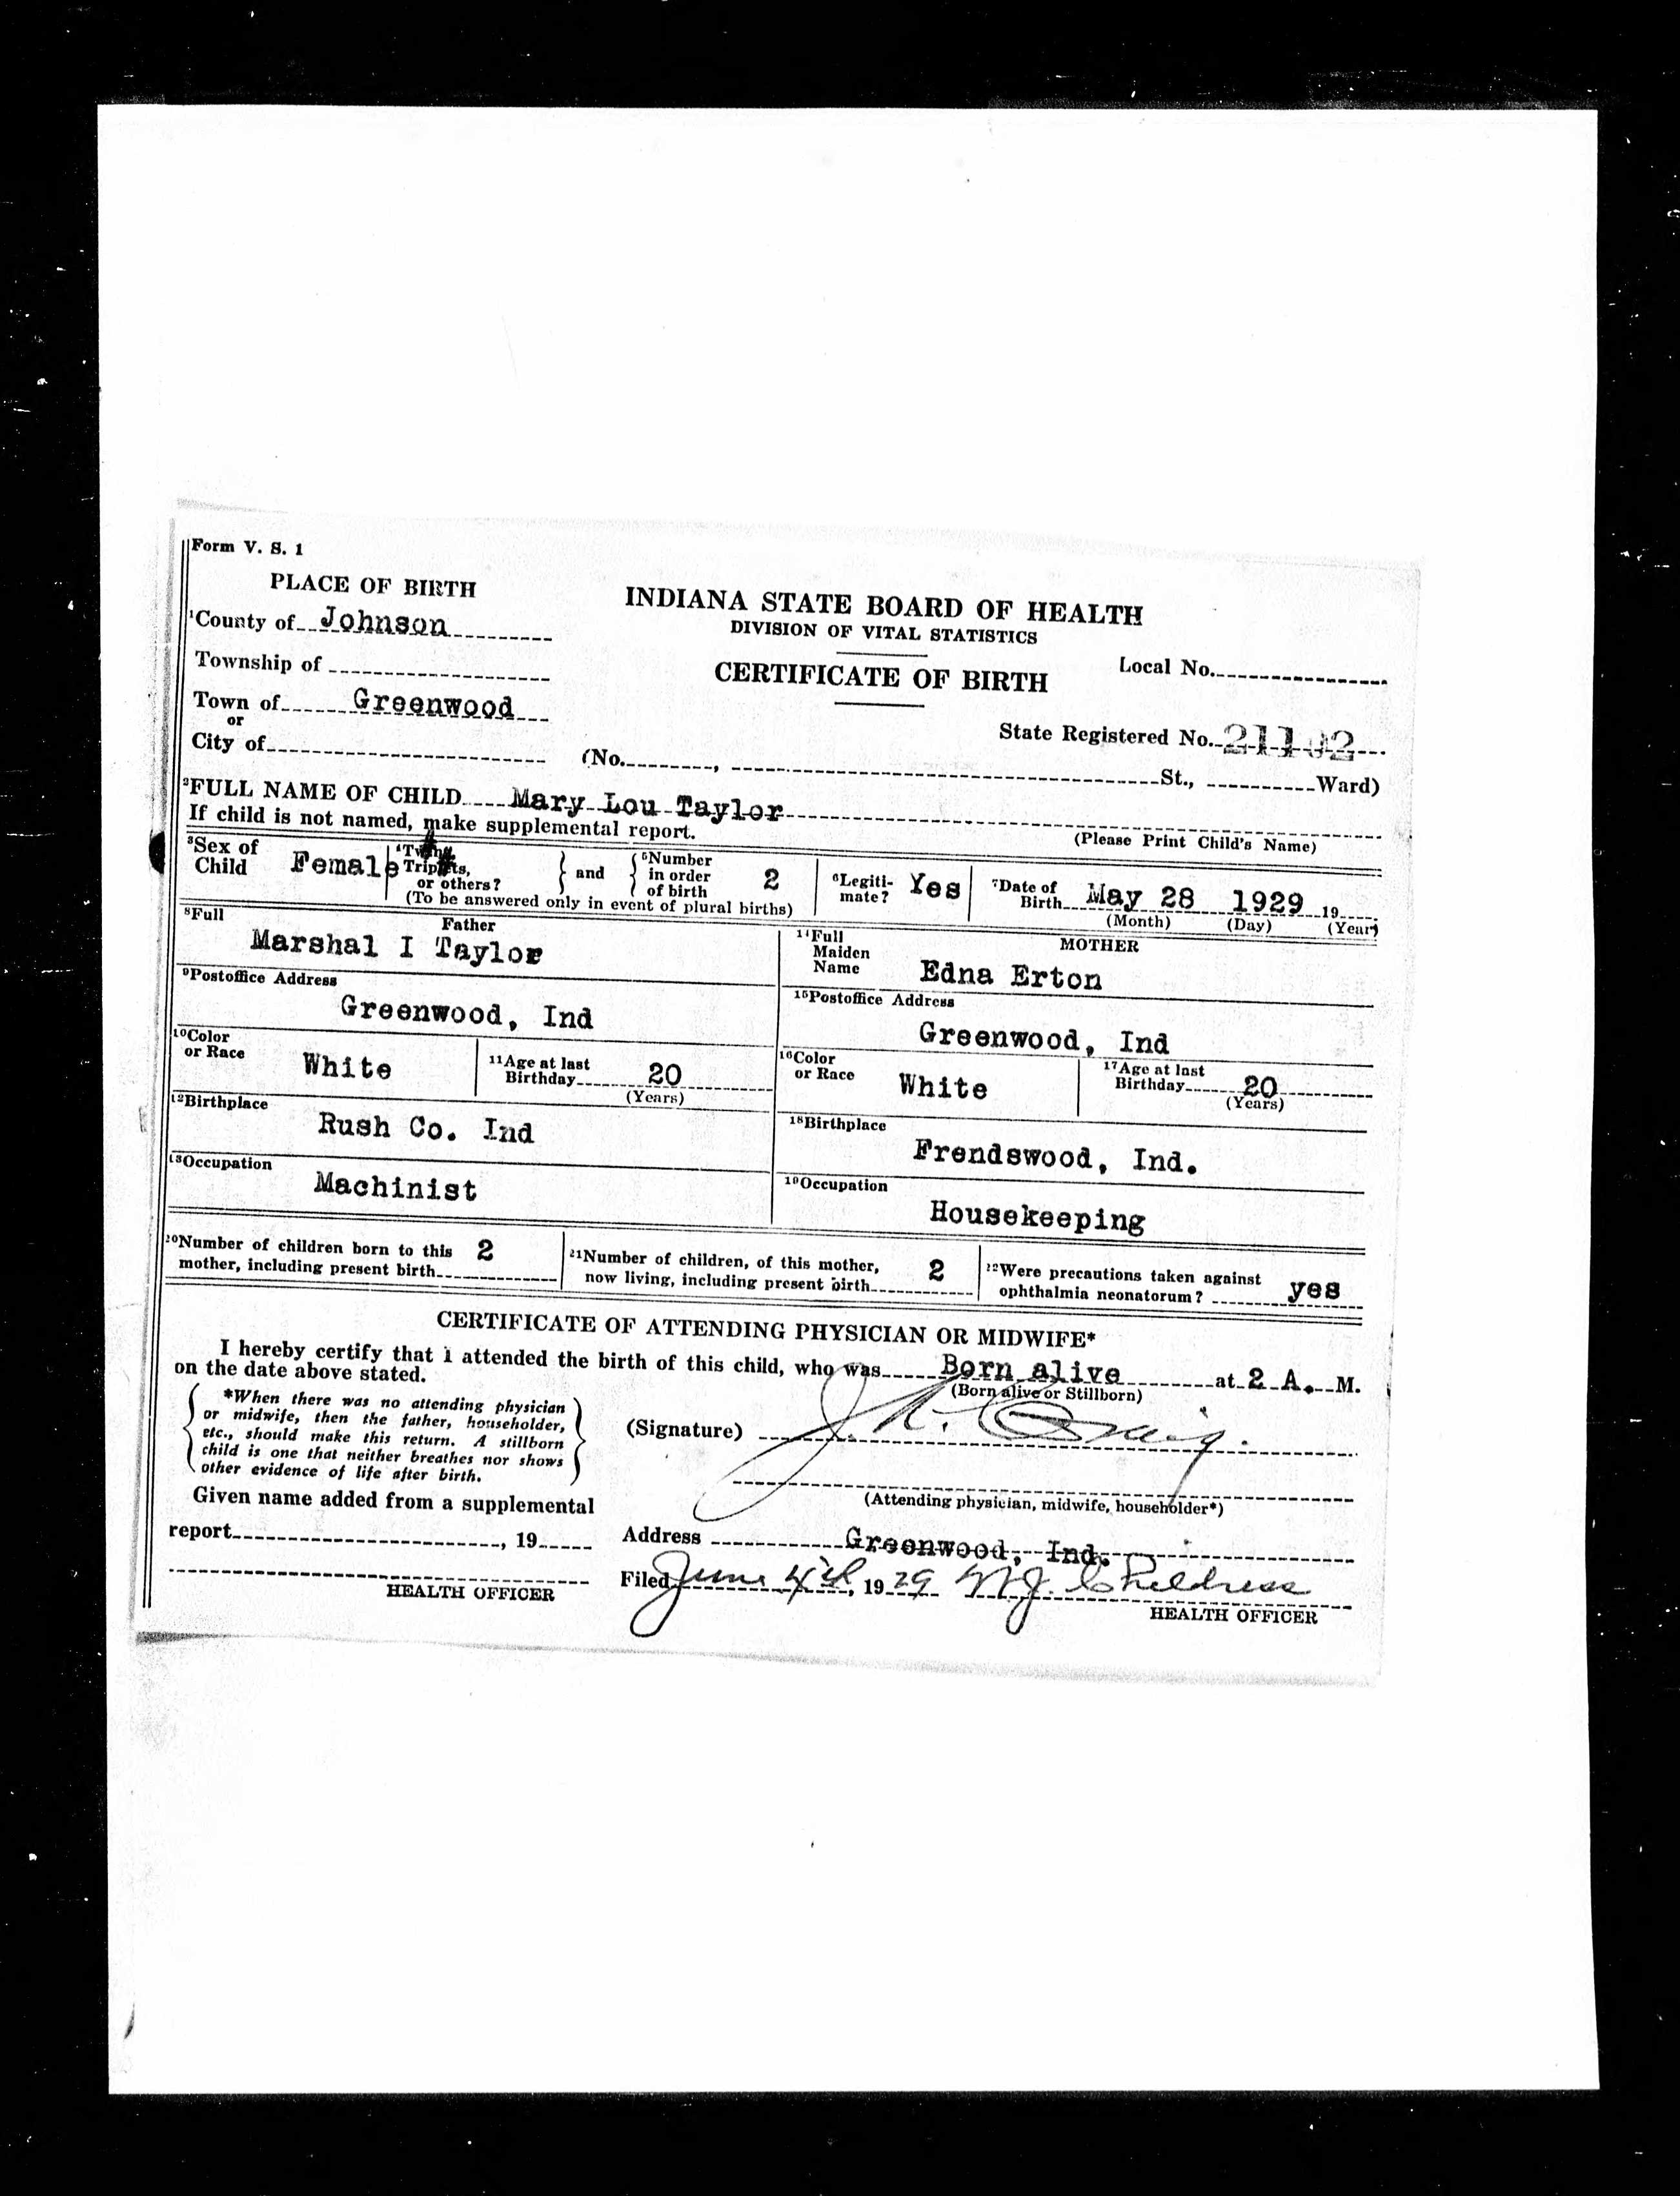 Form V. S. 1
PLACE OF BIRTH
INDIANA STATE BOARD OF HEALTH
DIVISION OF VITAL STATISTICS
1County of Johnson
Township of
CERTIFICATE OF BIRTH
Local No.
Town of Greenwood
or
City of
State Registered No. 21102
(No. , St., Ward)
2FULL NAME OF CHILD Mary Lou Taylor
If child is not named, make supplemental report.
(Please Print Child's Name)
3Sex of Child Female
4Twins, Triplets, or others?
and
5Number in order of birth 2
(To be answered only in event of plural births)
6Legitimate? Yes
7Date of Birth May 28 1929 19
(Month) (Day) (Year)
8Full Father
Marshal I Taylor
14Full Maiden Name MOTHER
Edna Erton
9Postoffice Address
Greenwood, Ind
15Postoffice Address
Greenwood, Ind
10Color or Race White
11Age at last Birthday 20
(Years)
16Color or Race White
17Age at last Birthday 20
(Years)
12Birthplace
Rush Co. Ind
18Birthplace
Frendswood, Ind.
13Occupation
Machinist
19Occupation
Housekeeping
20Number of children born to this mother, including present birth 2
21Number of children, of this mother, now living, including present birth 2
22Were precautions taken against ophthalmia neonatorum? yes
CERTIFICATE OF ATTENDING PHYSICIAN OR MIDWIFE*
I hereby certify that I attended the birth of this child, who was Born alive at 2 A. M.
on the date above stated.
(Born alive or Stillborn)
*When there was no attending physician
or midwife, then the father, householder,
etc., should make this return. A stillborn
child is one that neither breathes nor shows
other evidence of life after birth.
(Signature) J. Craig.
(Attending physician, midwife, householder*)
Given name added from a supplemental
report , 19
HEALTH OFFICER
Address Greenwood, Ind.
Filed June 4th, 1929 Childress
HEALTH OFFICER